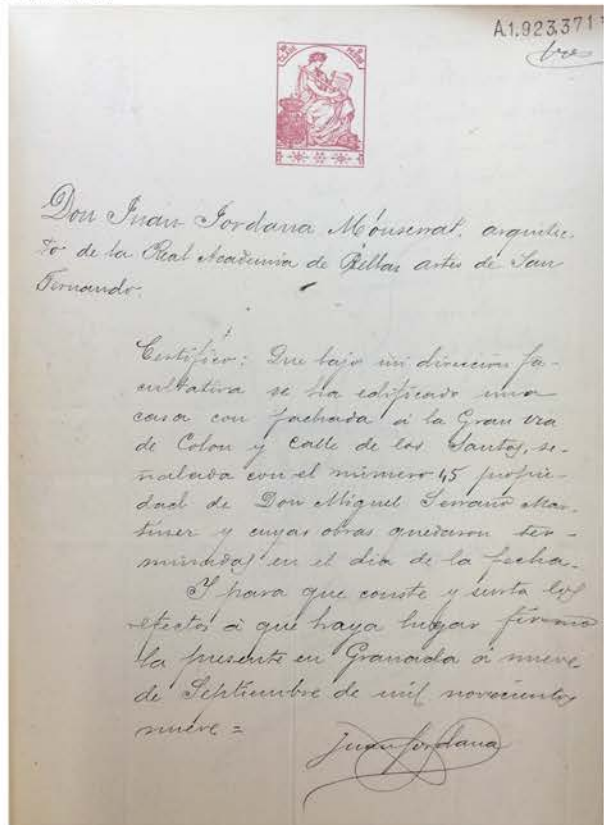 A.1.923.371
tres
CLASE
Don Juan Jordana Mónserrat, arquitec-
to de la Real Academia de Bellas artes de San
Fernando.
Certifico: Que bajo mi direccion fa-
cultativa se ha edificado una
casa con fachada á la Gran via
de Colon y Calle de los Santos, se-
ñalada con el número 45 propie-
dad de Don Miguel Serrano Mar-
tinez y cuyas obras quedaron ter-
minadas en el dia de la fecha.
Y para que conste y surta los
efectos á que haya lugar firmo
la presente en Granada á nueve
de Septiembre de mil novecientos
nueve =
Juan Jordana